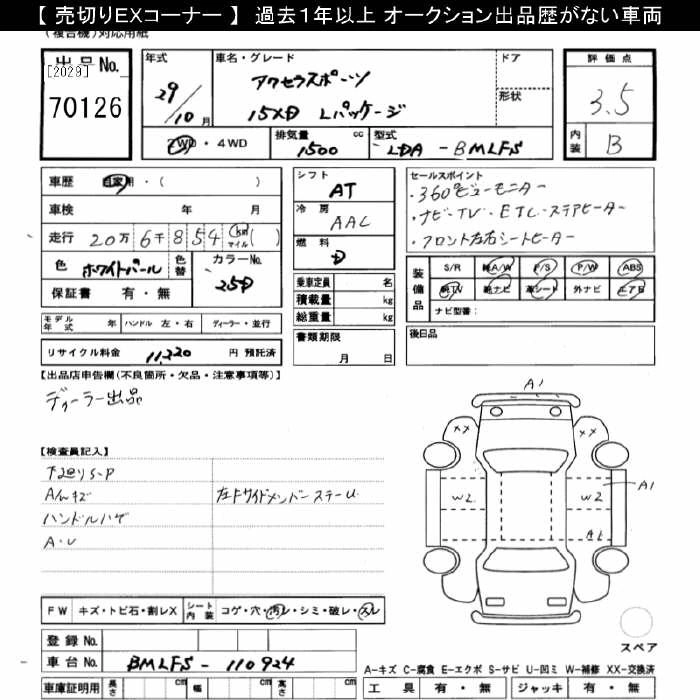 【 売切りEXコーナー 】 過去１年以上 オークション出品歴がない車両
(複合機)対応用紙
出品No.
[2029]
70126
年式
29/10月
車名・グレード
アクセラスポーツ
15XD Lパッケージ
ドア
形状
評価点
3.5
内装
B
2WD・4WD
排気量 1500 cc
型式 LDA-BMLFS
車歴 自家用・( )
車検 年 月
走行 20万6千854 km マイル ( )
色 ホワイトパール 色替
カラーNo. 25D
保証書 有・無
シフト AT
冷房 AAC
燃料 D
乗車定員 名
積載量 kg
総重量 kg
書類期限 月 日
セールスポイント
・360°ビューモニター
・ナビ・TV・ETC・ステアヒーター
・フロント左右シートヒーター
装備品
S/R A/W P/S P/W ABS
純TV 純ナビ 革シート 外ナビ エアB
ナビ型番:
後日品
モデル年式 年 ハンドル 左・右 ディーラー・並行
リサイクル料金 11,220 円 預託済
【出品店申告欄(不良箇所・欠品・注意事項等)】
ディーラー出品
【検査員記入】
下廻りS・P
A/Wキズ 左Fサイドメンバーステーu
ハンドルハゲ
A・U
A1
XX XX
W2 W2 A1
A1
FW キズ・トビ石・割レX シート内装 コゲ・穴・汚レ・シミ・破レ・スレ
スペア
登録No.
車台No. BMLFS-110924
車庫証明用 長さ cm 幅 cm 高さ cm
A-キズ C-腐食 E-エクボ S-サビ U-凹ミ W-補修 XX-交換済
工具 有・無 ジャッキ 有・無